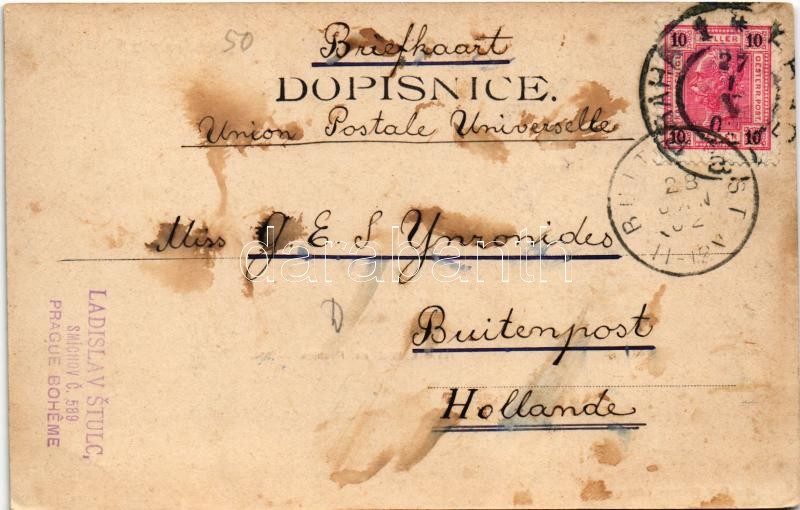 50
Briefkaart
DOPISNICE.
Union Postale Universelle
Miss J E S Ynzonides
Buitenpost
Hollande
D
LADISLAV ŠTULC,
SMÍCHOV Č. 589
PRAGUE BOHÊME
10 HELLER 10
OESTERR. POST
10 10
27
1
28
JAN
02
11-12
darabanth